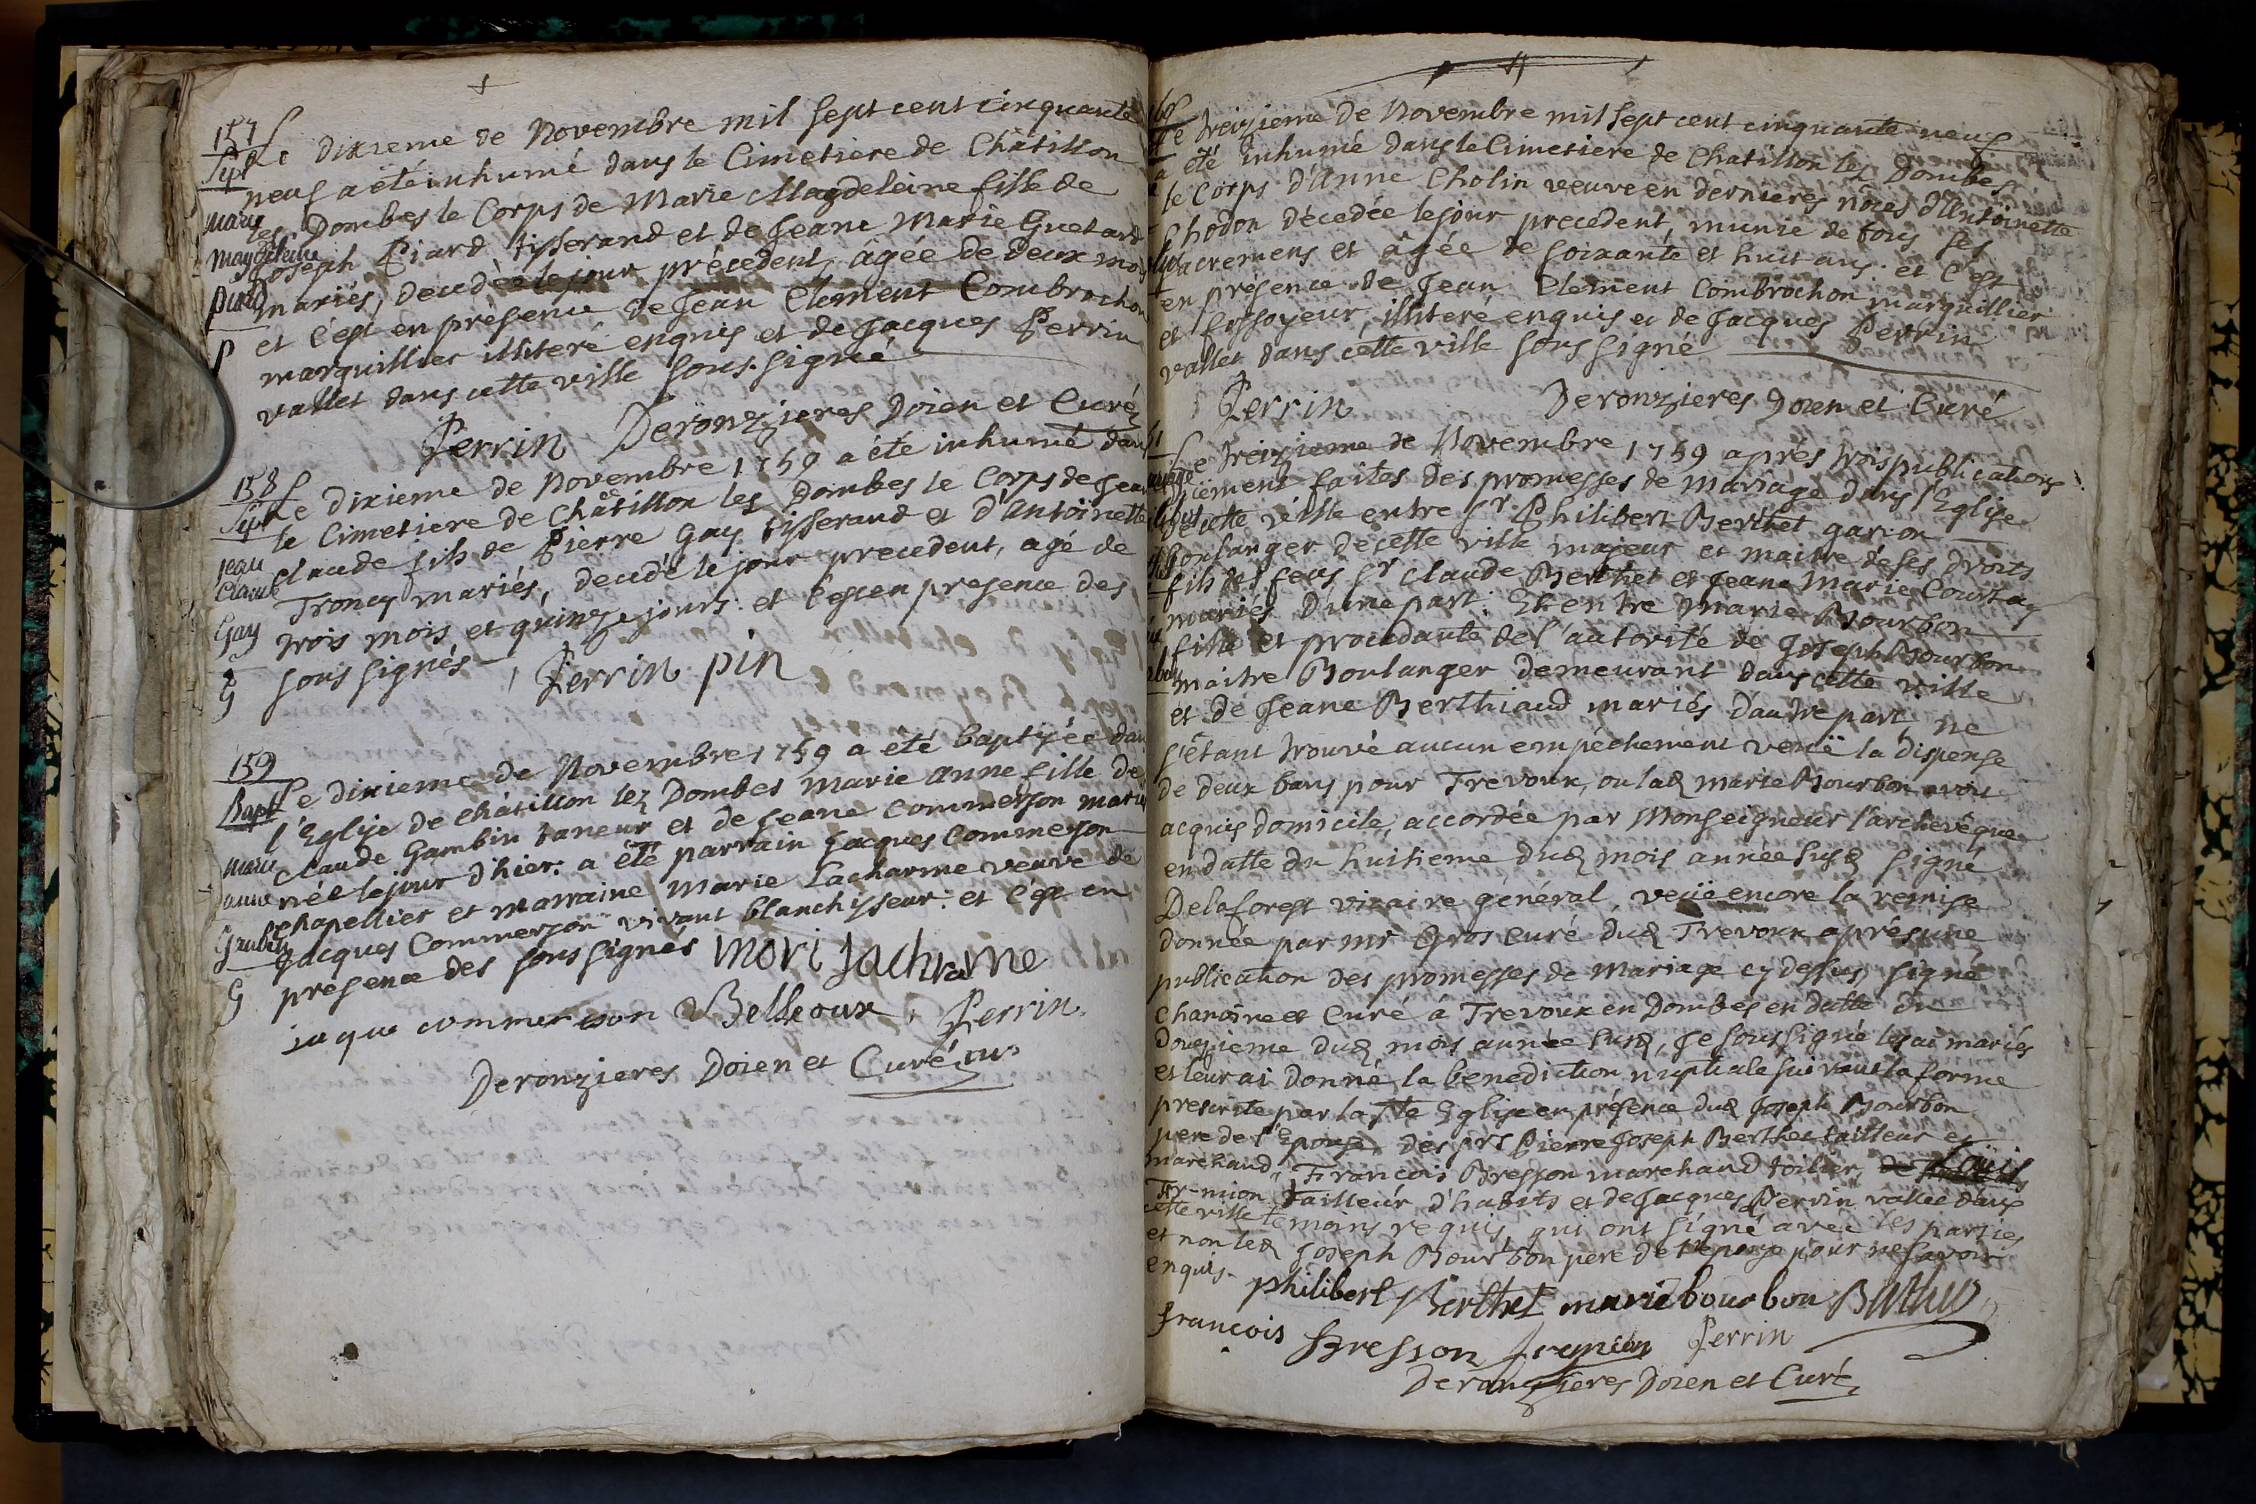 157
Sepre
marie
magdeleine
piard
P
Le dixieme de Novembre mil sept cent cinquante
neuf a été inhumé dans le Cimetiere de Châtillon
les Dombes le Corps de Marie Magdeleine fille de
Joseph Piard tisserand et de Jeane Marie Guetard
mariés, decedée le jour précedent, âgée de deux mois
et c'est en présence de Jean Clement Combrochon
marguillier illiteré enquis et de Jacques Perrin
vallet dans cette ville sous-signé
Perrin Deronzieres Doien et Curé
158
Sepre
jean
Claude
Gay
G
Le dixieme de Novembre 1759 a été inhumé dans
le Cimetiere de Châtillon les Dombes le Corps de Jean
claude fils de Pierre Gay tisserand et d'Antoinette
Troncy mariés, decedé le jour precedent, agé de
trois mois et quinze jours. et c'est en presence des
sous signés
Perrin pin
159
Bapt
marie
anne
Gambin
G
Le dixieme de Novembre 1759 a été baptisée dans
l'Eglise de châtillon lez Dombes Marie anne fille de
claude Gambin taneur et de Jeane Commerson mariés
née le jour d'hier. a été parrain Jacques Commerson
chapellier et marraine Marie Lacharme veuve de
Jacques Commerson vivant blanchisseur. et c'est en
présence des sous signés mori jachrame
jaque commerson Belleoux Perrin
Deronzieres Doien et Curé
Le treizieme de Novembre mil sept cent cinquante neuf
a été inhumé dans le Cimetiere de Chatillon lez Dombes
le Corps d'Anne Cholin veuve en dernieres nôces d'Antoinette
Chodon décedée le jour precedent, munie de tous ses
sacremens et âgée de soixante et huit ans. et c'est
en présence de Jean Clement Combrochon marguillier
et fossoyeur illiteré enquis et de Jacques Perrin
vallet dans cette ville sous signé
Perrin Deronzieres Doien et Curé
Le treizieme de Novembre 1759 aprés trois publications
faites des promesses de Mariage dans l'Eglise
de cette ville entre Sr. Philibert Berthet garcon
boulanger de cette ville majeur et maitre de ses droits
fils des feus Sr Claude Berthet et Jeane Marie Courtay
mariés d'une part. Et entre Marie Bourbon
fille et procedante de l'autorité de Joseph Bourbon
maitre Boulanger demeurant dans cette ville
et de Jeane Berthiaud mariés d'autre part, ne
s'étant trouvé aucun empêchement veüe la dispense
de deux bans pour Trevoux, ou lad. marie Bourbon avoit
acquis domicile, accordée par Monseigneur l'archevêque
en datte du huitieme dud. mois année susd. signé
Delaforest vicaire général, veüe encore la remise
donnée par mr Gros curé dud. Trevoux aprés une
publication des promesses de Mariage cy dessus signé
chanoine et Curé á Trevoux en Dombes en datte du
douzieme dud. mois année susd. Je soussigné les ai mariés
et leur ai donné la benediction nuptiale suivant la forme
prescrite par la Ste Eglise en présence dud. Joseph Bourbon
pere de l'Epouse, des srs Pierre Joseph Berthet tailleur et
marchand, Francois Bresson marchand toilier, de Louis
Fremion tailleur d'habits et de Jacques Perrin vallet dans
cette ville temoins requis, qui ont signé avec les parties
et non led. Joseph Bourbon pere de l'epouse pour ne savoir
enquis. philibert Berthet marie bourbon Berthet
françois Bresson fremion Perrin
Deronzieres Doien et Curé